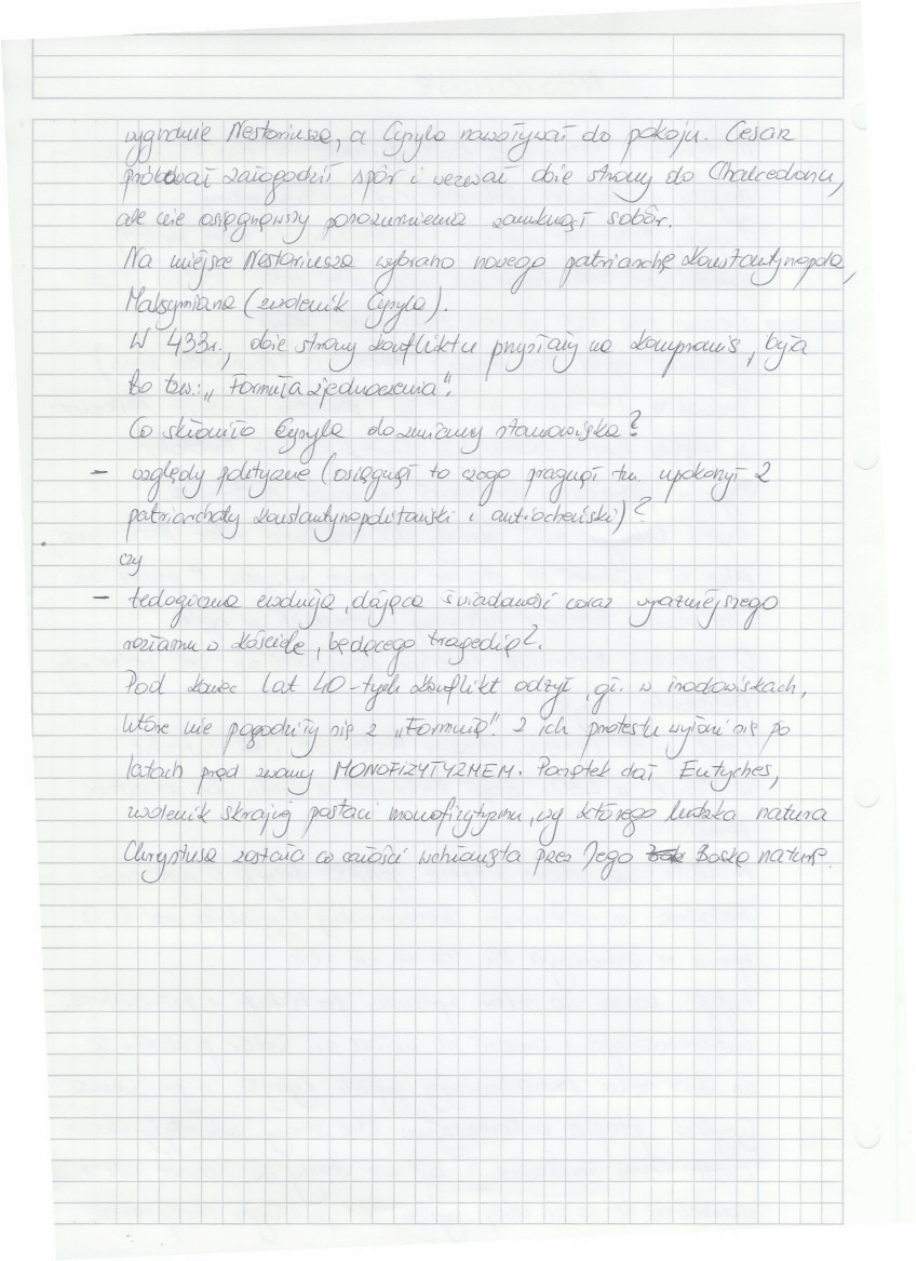 wygnanie Nestoriusza, a Cyryla nawoływał do pokoju. Cesarz
próbował załagodzić spór i wezwał obie strony do Chalcedonu,
ale nie osiągnąwszy porozumienia zamknął sobór.
Na miejsce Nestoriusza wybrano nowego patriarchę Konstantynopola,
Maksymiana (zwolenik Cyryla).
W 433r., obie strony konfliktu przystały na kompromis, była
to tzw.: „Formuła zjednoczenia".
Co skłoniło Cyryla do zmiany stanowiska?
- względy polityczne (osiągnął to czego pragnął tzn. upokorzył 2
patriarchaty konstantynopolitański i antiocheński)?
czy
- teologiczna ewolucja, dająca świadomość coraz wyraźniejszego
rozłamu w Kościele, będącego tragedią?.
Pod koniec lat 40-tych konflikt odżył, gł. w środowiskach,
które nie pogodziły się z „Formułą". Z ich protestu wyłoni się po
latach prąd zwany MONOFIZYTYZMEM. Początek dał Eutyches,
zwolenik skrajnej postaci monofizytyzmu, wg którego ludzka natura
Chrystusa została co całości wchłonięta przez Jego Boską naturę.